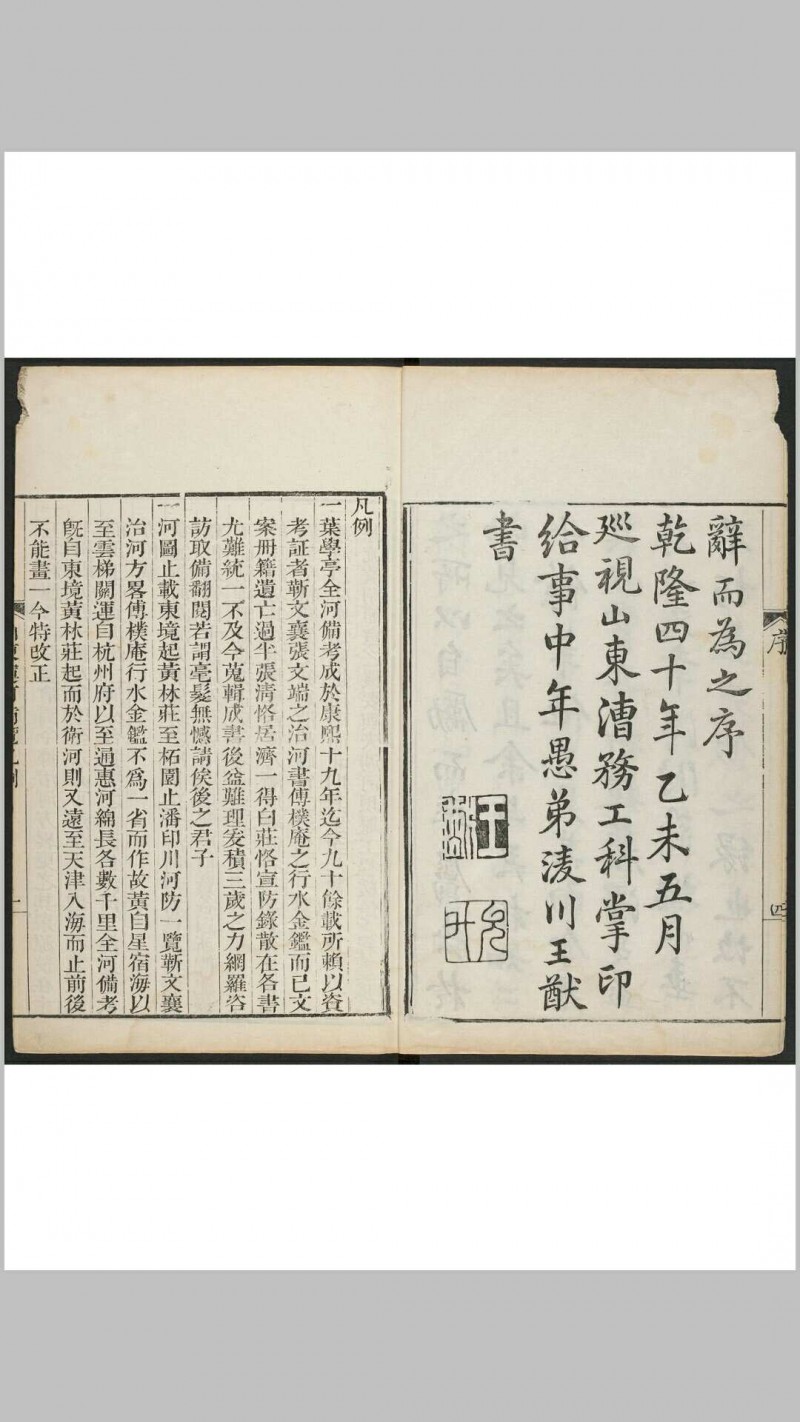 辭而為之序
乾隆四十年乙未五月
巡視山東漕務工科掌印
給事中年愚弟淩川王猷
書
序
四
凡例
一葉學亭全河備考成於康熙十九年迄今九十餘載所賴以資
考証者靳文襄張文端之治河書傅樸庵之行水金鑑而已文
案册籍遺亡過半張清恪居濟一得白莊恪宣防錄散在各書
尤難統一不及今蒐輯成書後益難理爰積三歲之力網羅咨
訪取備翻閱若謂毫髮無憾請俟後之君子
一河圖止載東境起黃林莊至柘園止潘印川河防一覽靳文襄
治河方畧傅樸庵行水金鑑不爲一省而作故黃自星宿海以
至雲梯關運自杭州府以至通惠河綿長各數千里全河備考
旣自東境黃林莊起而於衛河則又遠至天津入海而止前後
不能畫一今特改正